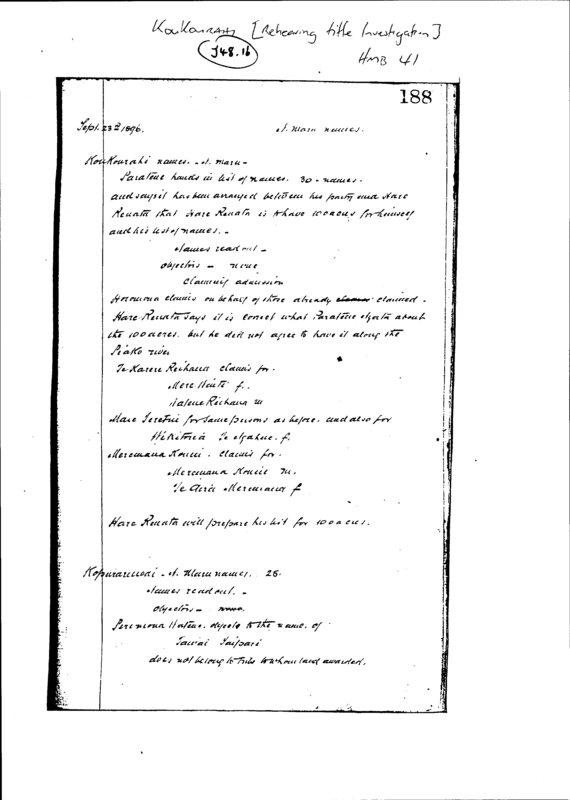 KouKourahi [Rehearing title Investigation]
J48.16
HMB 41
188
Sept. 23rd 1896. N. Maru names.
KouKourahi names. N. Maru -
Paratene hands in list of names. 30 names.
and says it has been arranged between his party and Hare
Renata that Hare Renata is to have 100 acres for himself
and his list of names. -
Names read out -
Objectors - none
Claiming admission
Horomona claims on behalf of those already claimed.
Hare Renata says it is correct what Paratene about
the 100 acres. but he did not agree to have it along the
Piako river
Te Karere Reihana claims for.
Mere f.
Reihana m
Mare Teretiu for same persons as before. and also for
Hikitoria Te f.
Meremana Konui. claims for.
Meremana Konui m.
Te Meremana f
Hare Renata will prepare his list for 100 acres.
N. Maru names. 28.
Names read out. -
Objectors - none.
objects to the name of
Tawai Taipari
does not belong to tribe to whom land awarded.